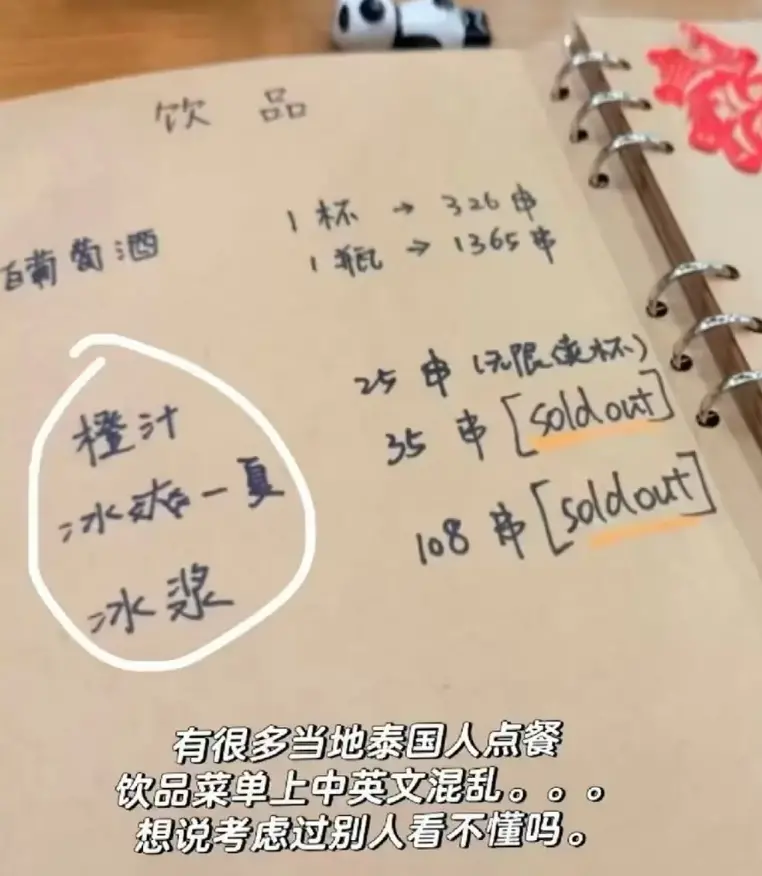 饮品
白葡萄酒 1杯 → 326串
1瓶 → 1365串
橙汁 25串(无限续杯)
冰爽一夏 35串[sold out]
冰浆 108串[sold out]
有很多当地泰国人点餐
饮品菜单上中英文混乱。。。
想说考虑过别人看不懂吗。